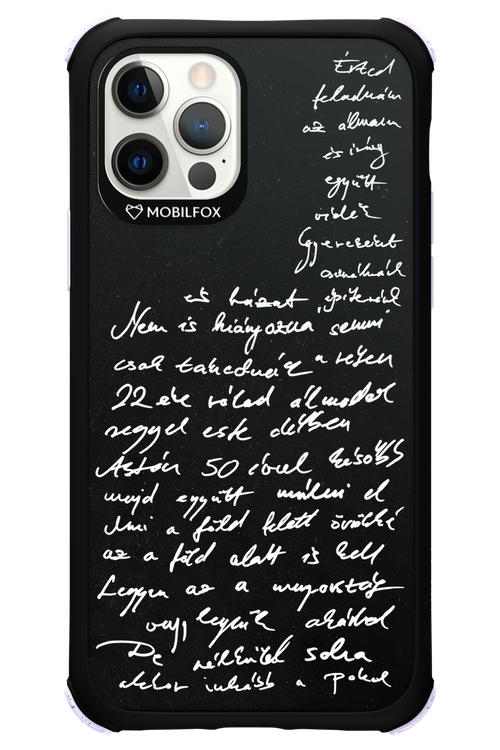 MOBILFOX
Érted
feladnám
az álmam
és így
együtt
Gyerekeket
csinálnánk
és házat építenénk
Nem is hiányozna semmi
csak takednék a
22 éve rólad álmodok
reggel este délben
Aztán 50 évvel később
majd együtt múlni el
Ami a föld felett örökké
az a föld alatt is kell
Legyen az a mennyország
vagy legyünk akárhol
De nélküled soha
akkor inkább a pokol